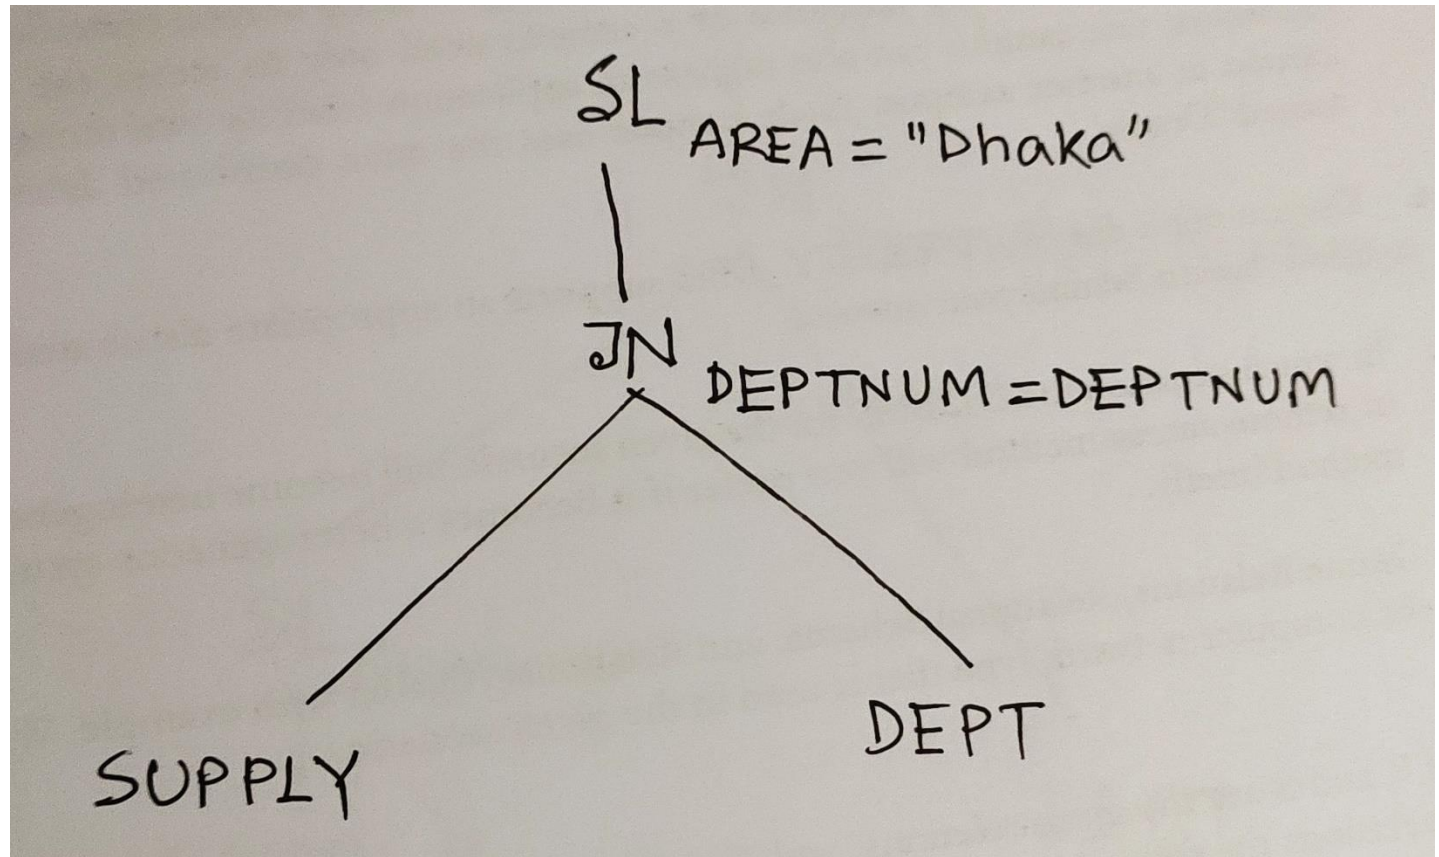 SL AREA = "Dhaka"
JN DEPTNUM = DEPTNUM
SUPPLY
DEPT